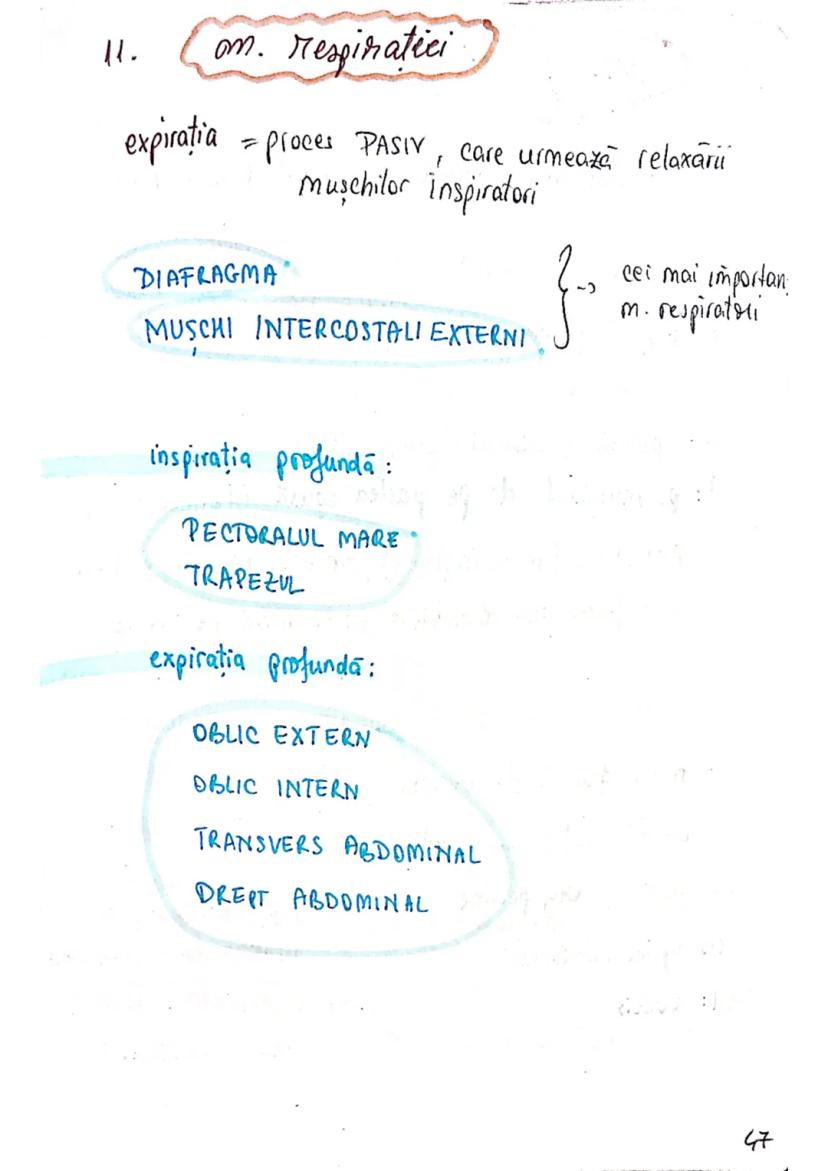 11. m. respirației
expirația = proces PASIV, care urmează relaxării
mușchilor inspiratori
DIAFRAGMA
MUȘCHI INTERCOSTALI EXTERNI
} -> cei mai importan
m. respiratori
inspirația profundă:
PECTORALUL MARE
TRAPEZUL
expirația profundă:
OBLIC EXTERN
OBLIC INTERN
TRANSVERS ABDOMINAL
DREPT ABDOMINAL
47